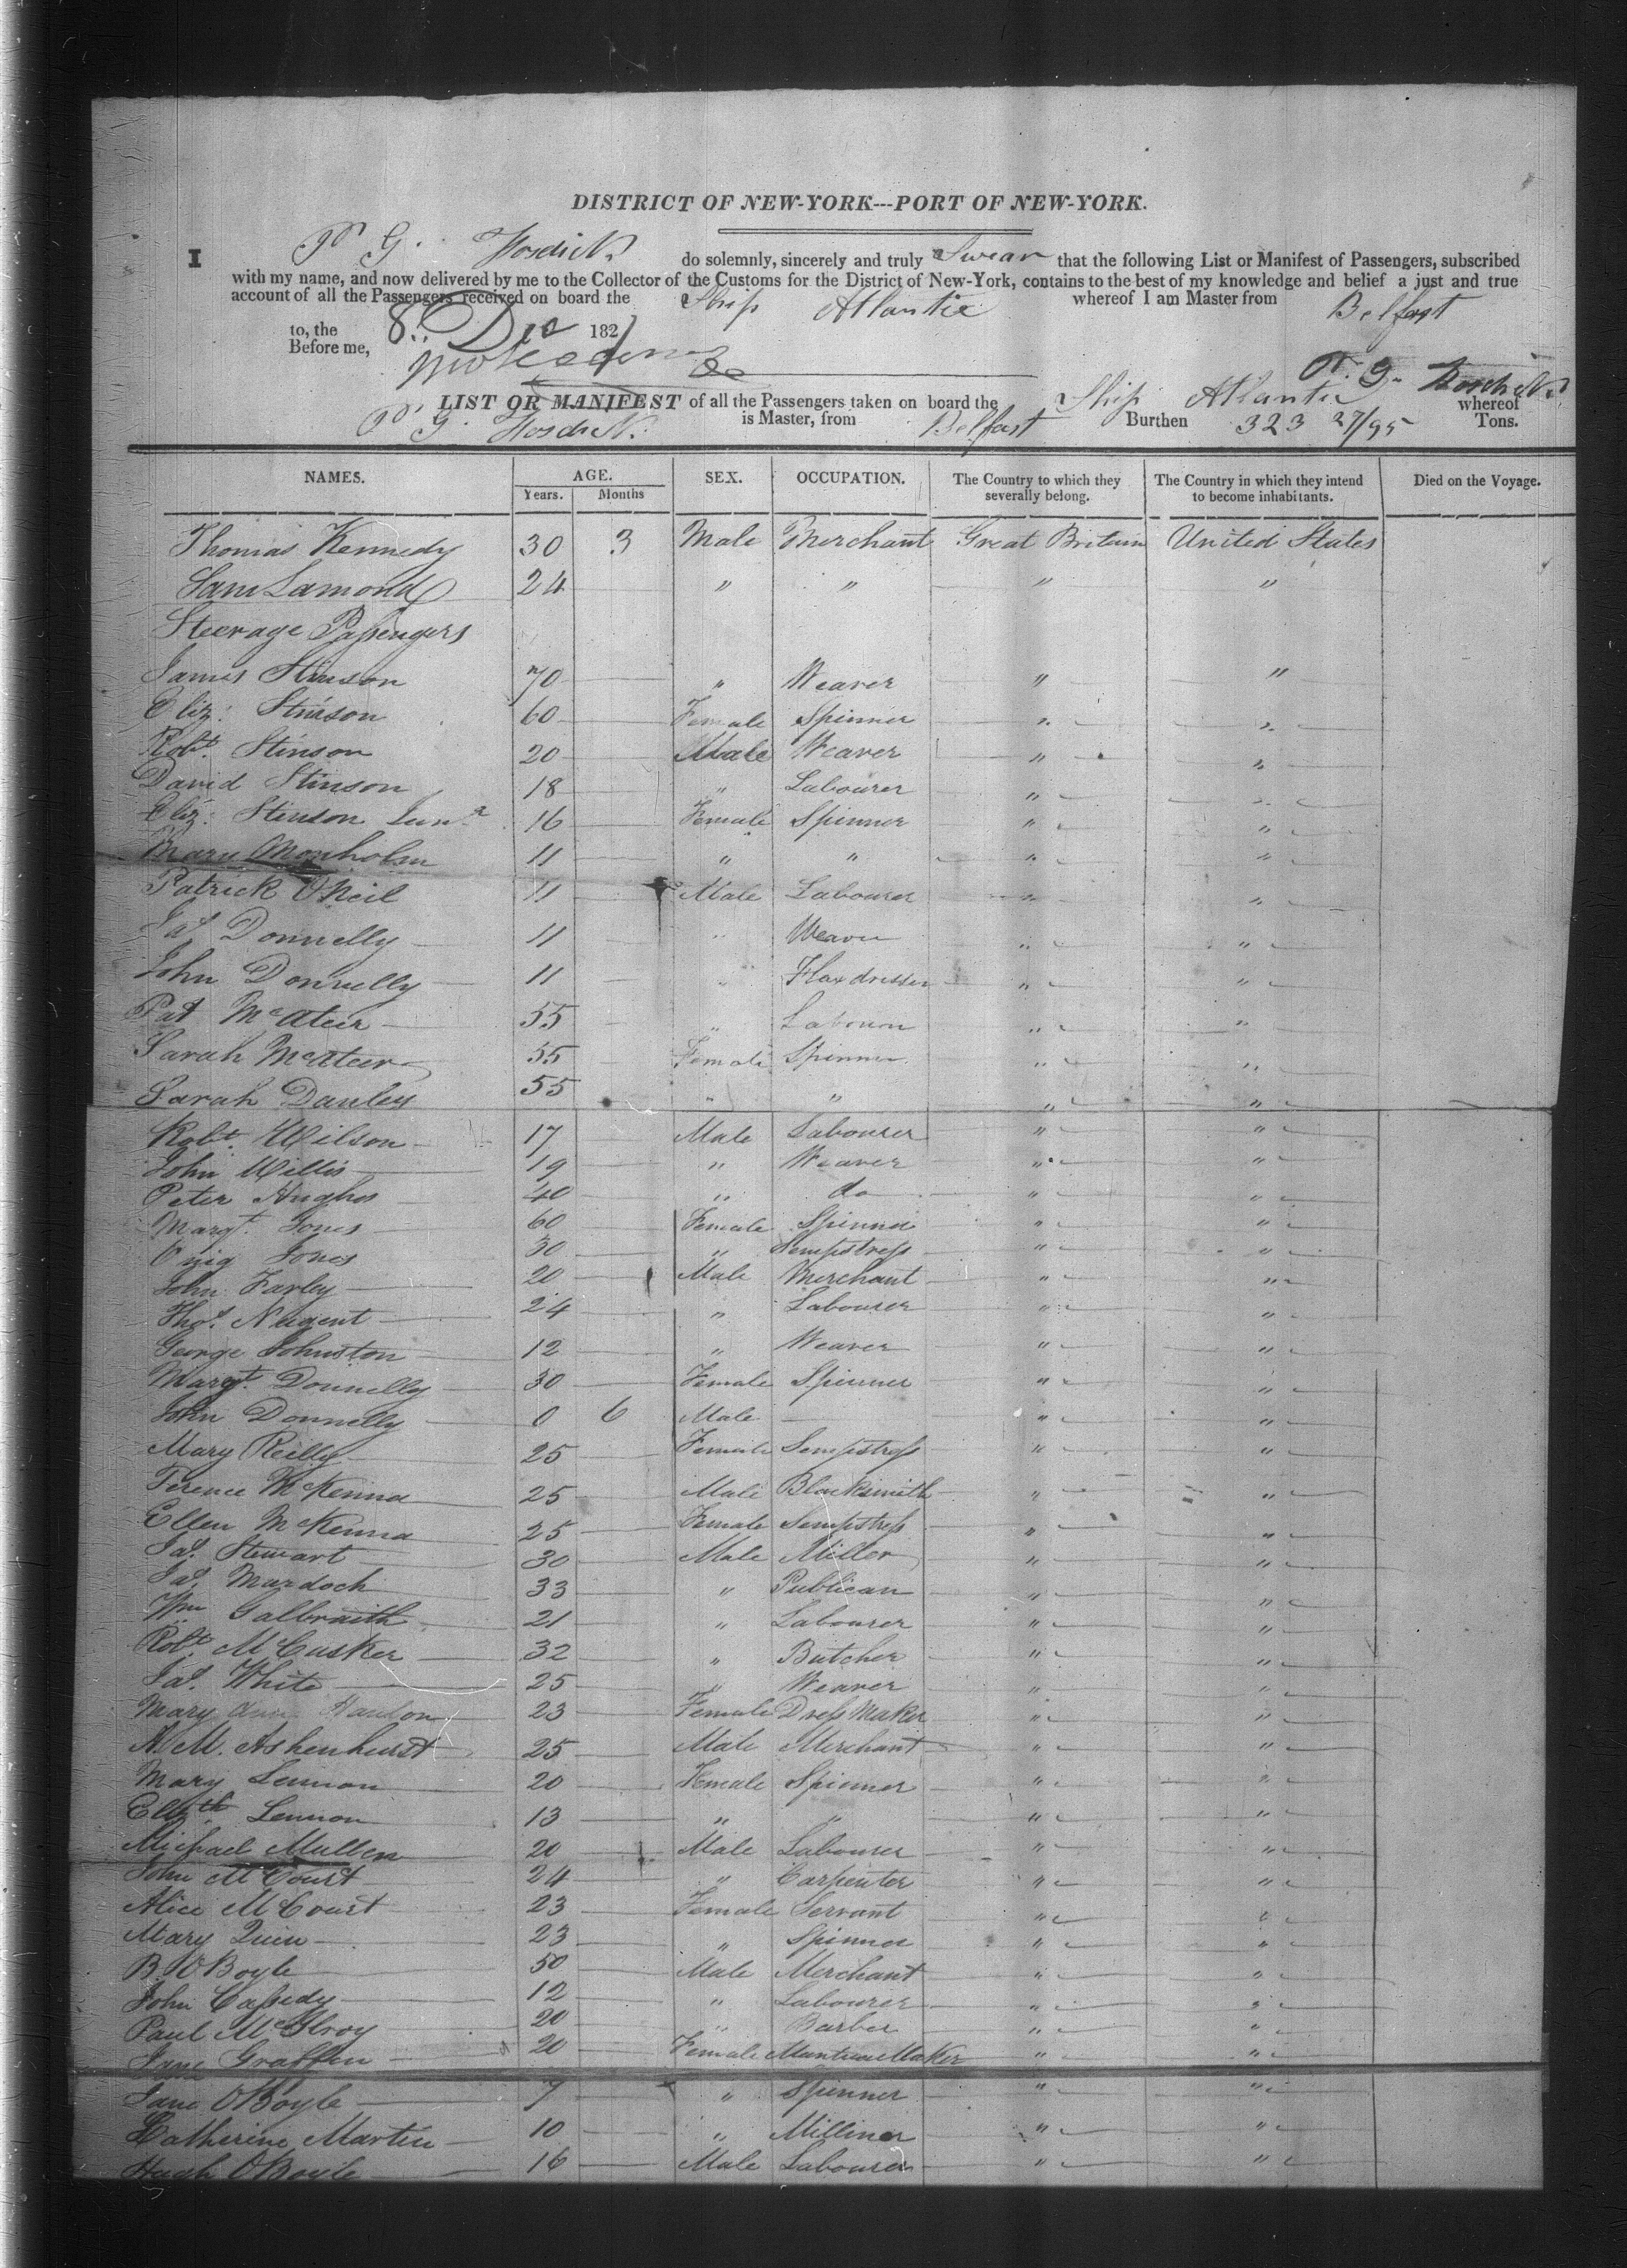 DISTRICT OF NEW-YORK---PORT OF NEW-YORK.
I P G. Fosdick do solemnly, sincerely and truly Swear that the following List or Manifest of Passengers, subscribed
with my name, and now delivered by me to the Collector of the Customs for the District of New-York, contains to the best of my knowledge and belief a just and true
account of all the Passengers received on board the Ship Atlantic whereof I am Master from Belfast
to, the 8. Dec 182
Before me,
P. G. Fosdick
LIST OR MANIFEST of all the Passengers taken on board the Ship Atlantic whereof
P G Fosdick is Master, from Belfast Burthen 323 27/95 Tons.
NAMES. AGE. SEX. OCCUPATION. The Country to which they severally belong. The Country in which they intend to become inhabitants. Died on the Voyage.
Years. Months
Thomas Kennedy 30 3 Male Merchant Great Britain United States
Sam Lamond 24 " " " "
Steerage Passengers
James Stinson 70 " Weaver " "
Eliz: Stinson 60 Female Spinner " "
Robt. Stinson 20 Male Weaver " "
David Stinson 18 " Labourer " "
Eliz: Stinson Junr 16 Female Spinner " "
Mary Monholm 11 " " " "
Patrick ONeil 11 Male Labourer " "
Jas Donnelly 11 " Weaver " "
John Donnelly 11 " Flaxdresser " "
Pat McAteer 55 " Labourer " "
Sarah McAteer 55 Female Spinner " "
Sarah Danley 55 " " " "
Robt. Wilson 17 Male Labourer " "
John Willis 19 " Weaver " "
Peter Hughes 40 " do " "
Margt. Jones 60 Female Spinner " "
Jones 30 " Sempstress " "
John Farley 20 Male Merchant " "
Thos. Nugent 24 " Labourer " "
George Johnston 12 " Weaver " "
Margt. Donnelly 30 Female Spinner " "
John Donnelly 0 6 Male - " "
Mary Reilly 25 Female Sempstress " "
Terence McKenna 25 Male Blacksmith " "
Ellen McKenna 25 Female Sempstress " "
Jas. Stewart 30 Male Miller " "
Jas. Murdoch 33 " Publican " "
Wm Galbraith 21 " Labourer " "
Robt. McCusker 32 " Butcher " "
Jas. White 25 " Weaver " "
Mary Ann Hanlon 23 Female Dress Maker " "
A. M. Ashenhurst 25 Male Merchant " "
Mary Lennon 20 Female Spinner " "
Elizth. Lennon 13 " " " "
Michael Mullen 20 Male Labourer " "
John McCourt 24 " Carpenter " "
Alice McCourt 23 Female Servant " "
Mary Quin 23 " Spinner " "
B. OBoyle 50 Male Merchant " "
John Cassedy 12 " Labourer " "
Paul McIlroy 20 " Barber " "
Jane Graffen 20 Female Mantua Maker " "
Jane OBoyle 7 " Spinner " "
Catherine Martin 10 " Milliner " "
Hugh OBoyle 16 Male Labourer " "